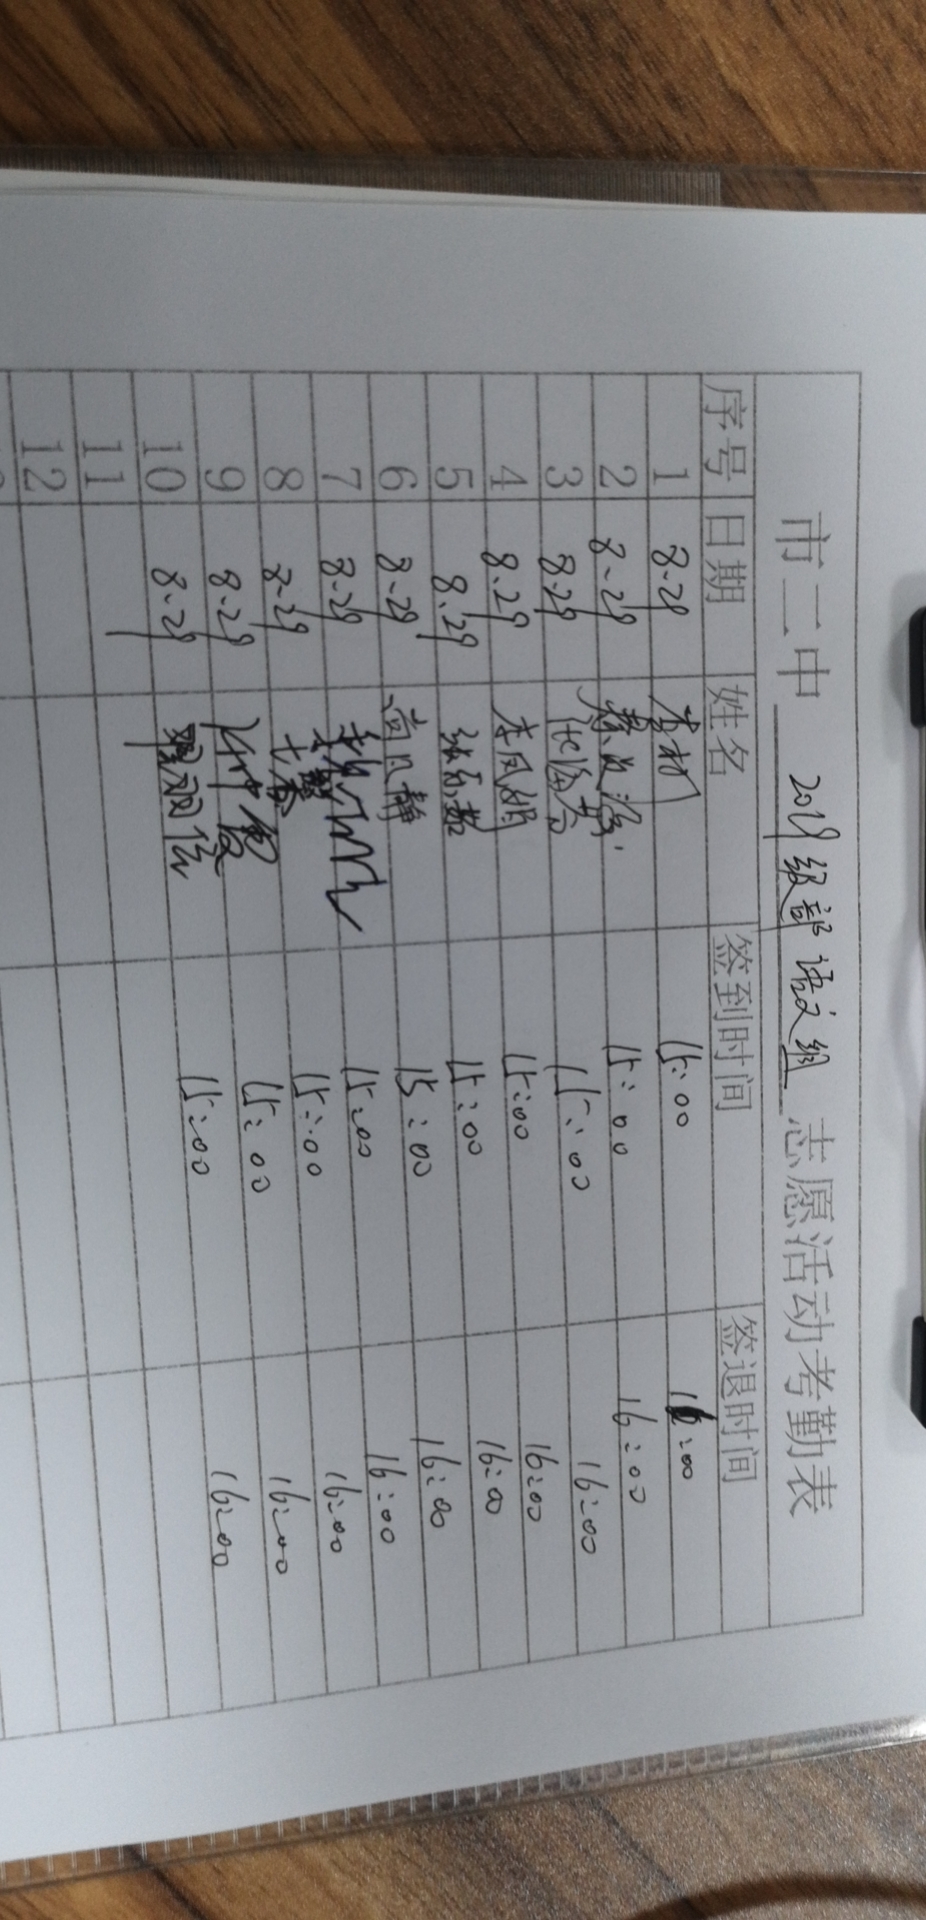 市二中 2019级部 语文组 志愿活动考勤表
序号 日期 姓名 签到时间 签退时间
1 8.29 15:00 16:00
2 8.29 15:00 16:00
3 8.29 15:00 16:00
4 8.29 李凤娟 15:00 16:00
5 8.29 15:00 16:00
6 8.29 尚凡静 15:00 16:00
7 8.29 15:00 16:00
8 8.29 15:00 16:00
9 8.29 15:00 16:00
10 8.29 15:00 16:00
11
12